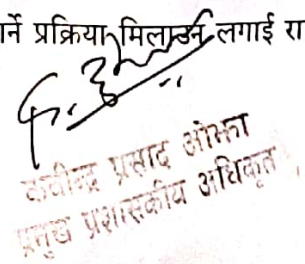 र्ने प्रक्रिया मिलाउन लगाई रा
कवीन्द्र प्रसाद ओझा
प्रमुख प्रशासकीय अधिकृत